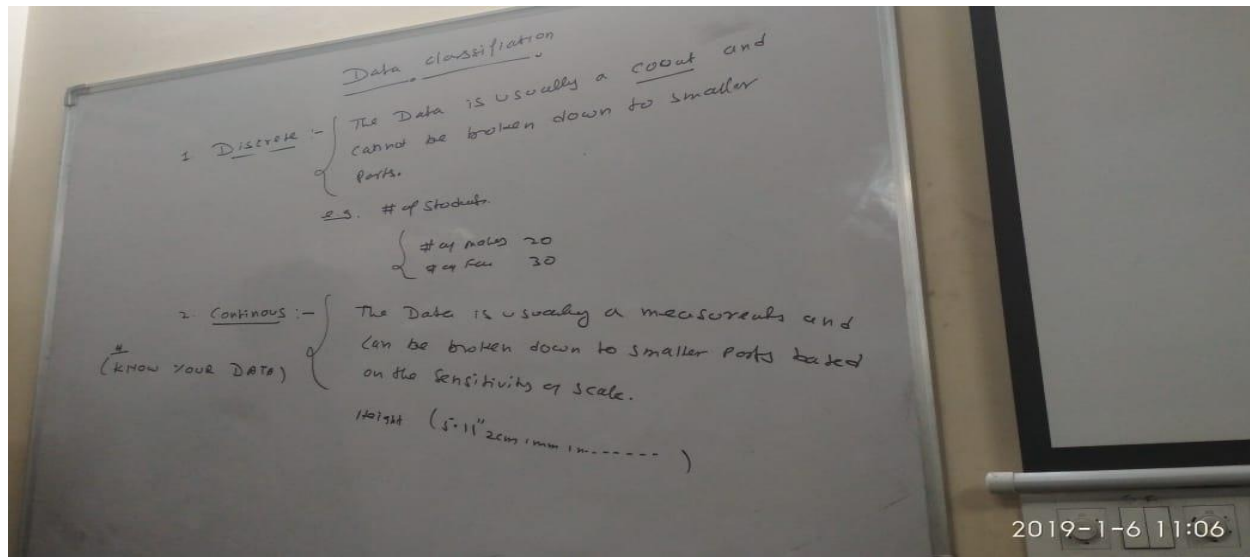 Data classifiation
1 Discrete :- The Data is usually a count and
cannot be broken down to smaller
parts.
e.g. # of Students.
# of males 20
# of Fem 30
2. Continous :- The Data is usually a measurents and
can be broken down to smaller Parts based
(KNOW YOUR DATA)
on the Sensitivity of scale.
Height (5.11" 2cm 1mm 1n------- )
2019-1-6 11:06